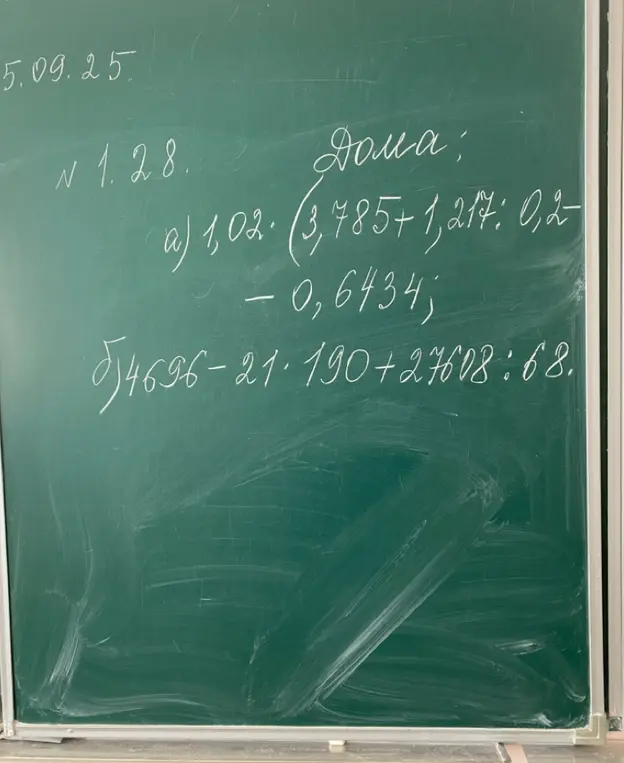 5.09.25.
N 1.28. Дома:
а) 1,02· (3,785+1,217: 0,2-
- 0,6434;
б) 4696-21·190+27608:68.